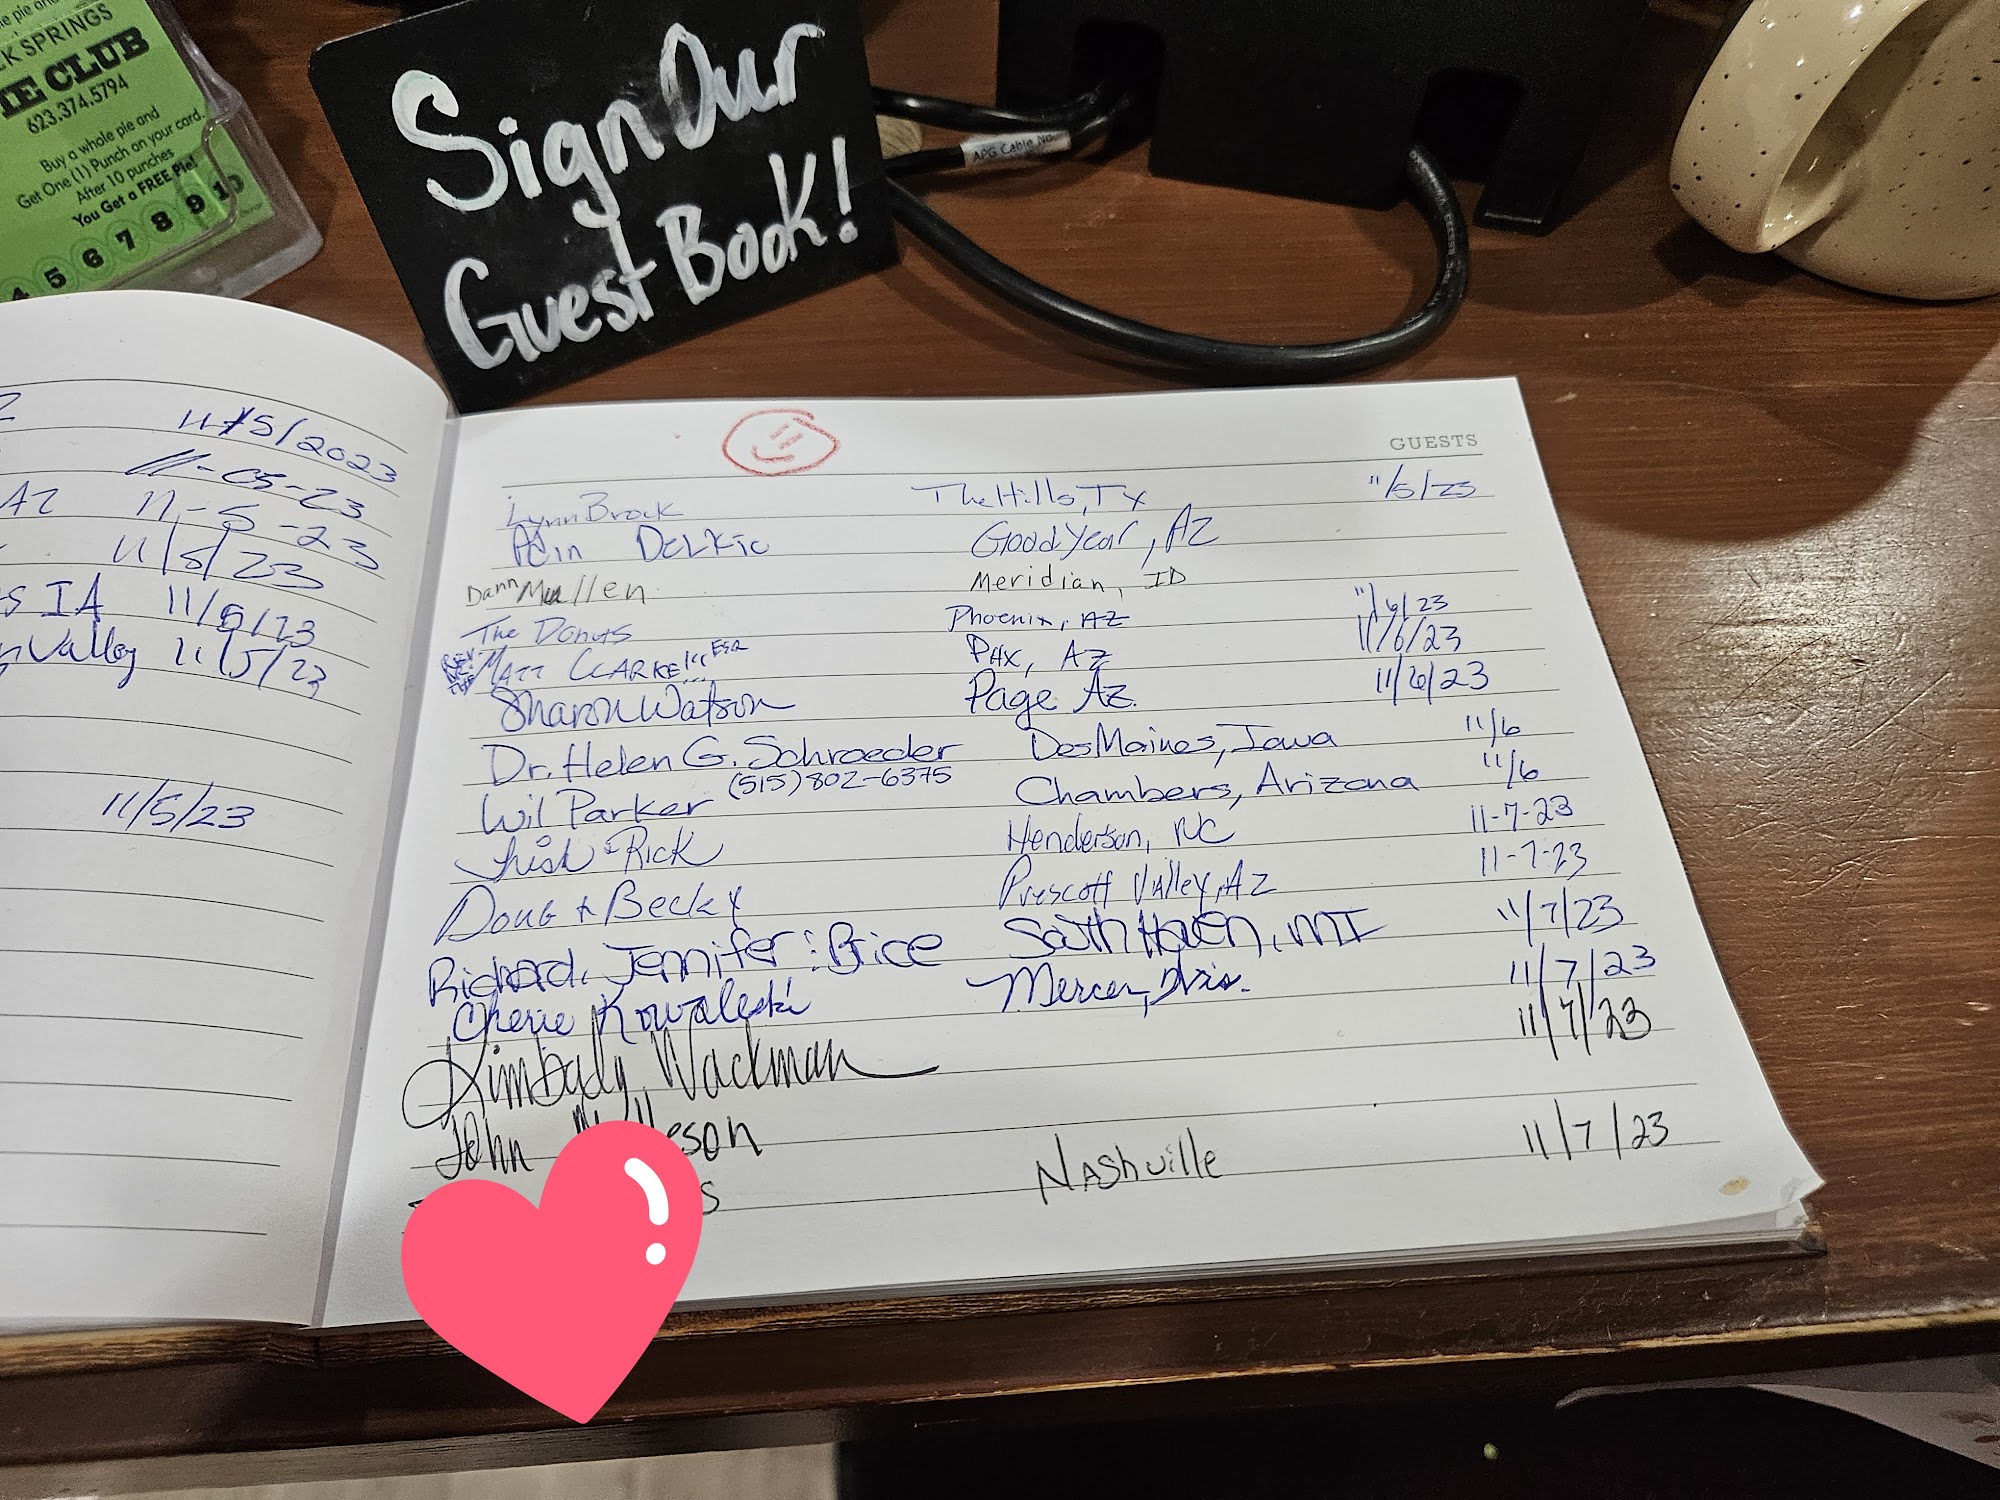 CK SPRINGS
IE CLUB
623.374.5794
Buy a whole pie and
Get One (1) Punch on your card.
After 10 punches
You Get a FREE Pie!
4 5 6 7 8 9 10
Sign Our
Guest Book!
APG Cable No.
11/5/2023
11-05-23
AZ 11-5-23
11/5/23
IA 11/5/23
Valley 11/5/23
11/5/23
GUESTS
Lynn Brock The Hills, TX 11/5/23
Goodyear, AZ
Mullen Meridian, ID
The Donuts Phoenix, AZ 11/6/23
REV. MATT CLARKE ESQ PHX, AZ 11/6/23
Sharon Watson Page Az. 11/6/23
Dr. Helen G. Schroeder Des Moines, Iowa 11/6
(515) 802-6375
Wil Parker Chambers, Arizona 11/6
Trish & Rick Henderson, NC 11-7-23
Doug & Becky Prescott Valley, AZ 11-7-23
Richard, Jennifer Brice South Haven, MI 11/7/23
Cherie Kowalski Mercer, Wis. 11/7/23
Kimberly Wackman 11/7/23
John
Nashville 11/7/23